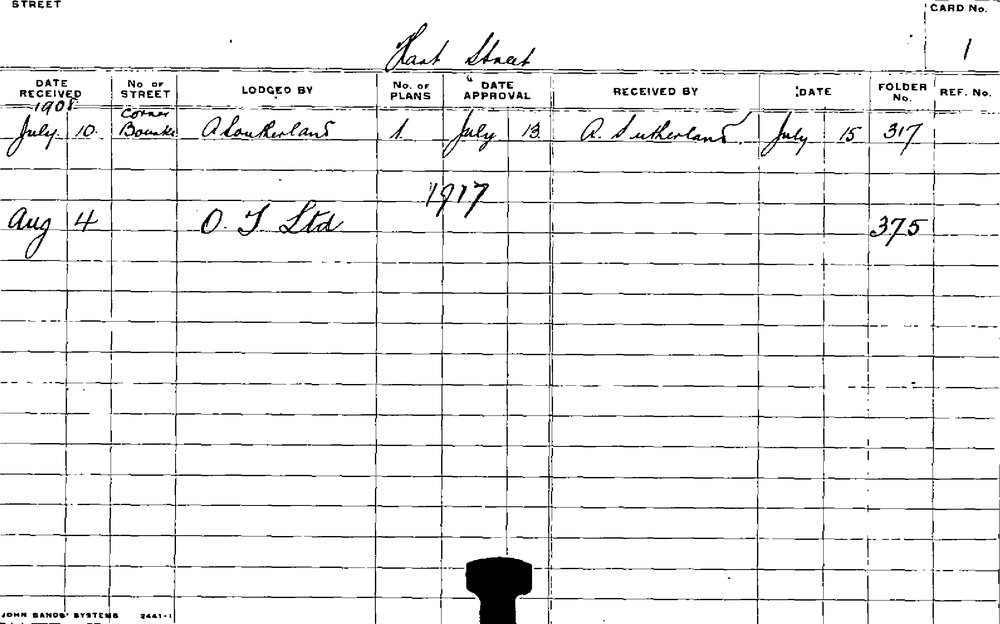 STREET
CARD No.
Hart Street
1
DATE RECEIVED No of STREET LODGED BY No. of PLANS DATE APPROVAL RECEIVED BY DATE FOLDER No. REF. No.
1908
Corner
July 10 Bourke A Soutkerland 1. July 13 A. Sutherland. July 15 317
1917
Aug 4 O. T Ltd 375
JOHN SANDS' SYSTEMS 2441-1